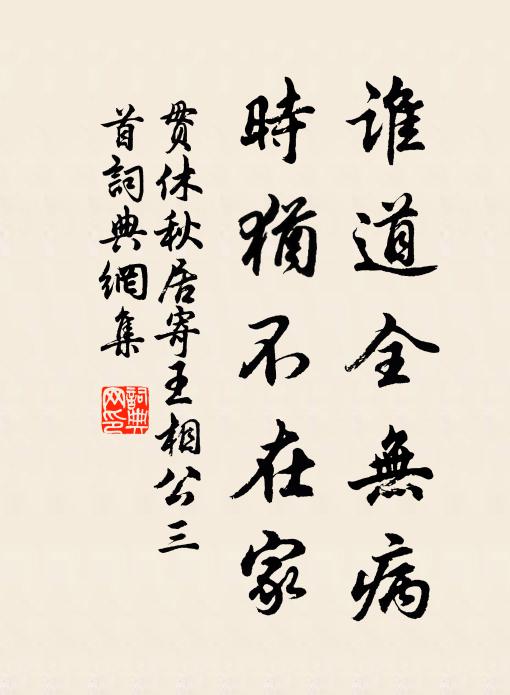 誰道全無病
時猶不在家
貫休秋居寄王相公三
首詞典網集
詞典
网印